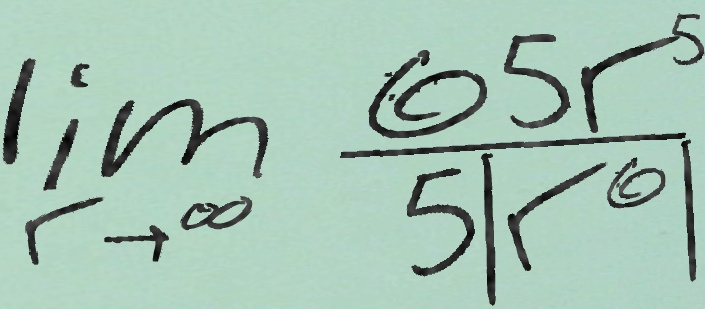 \lim_{r \to \infty} \frac{65r^5}{5|r^6|}